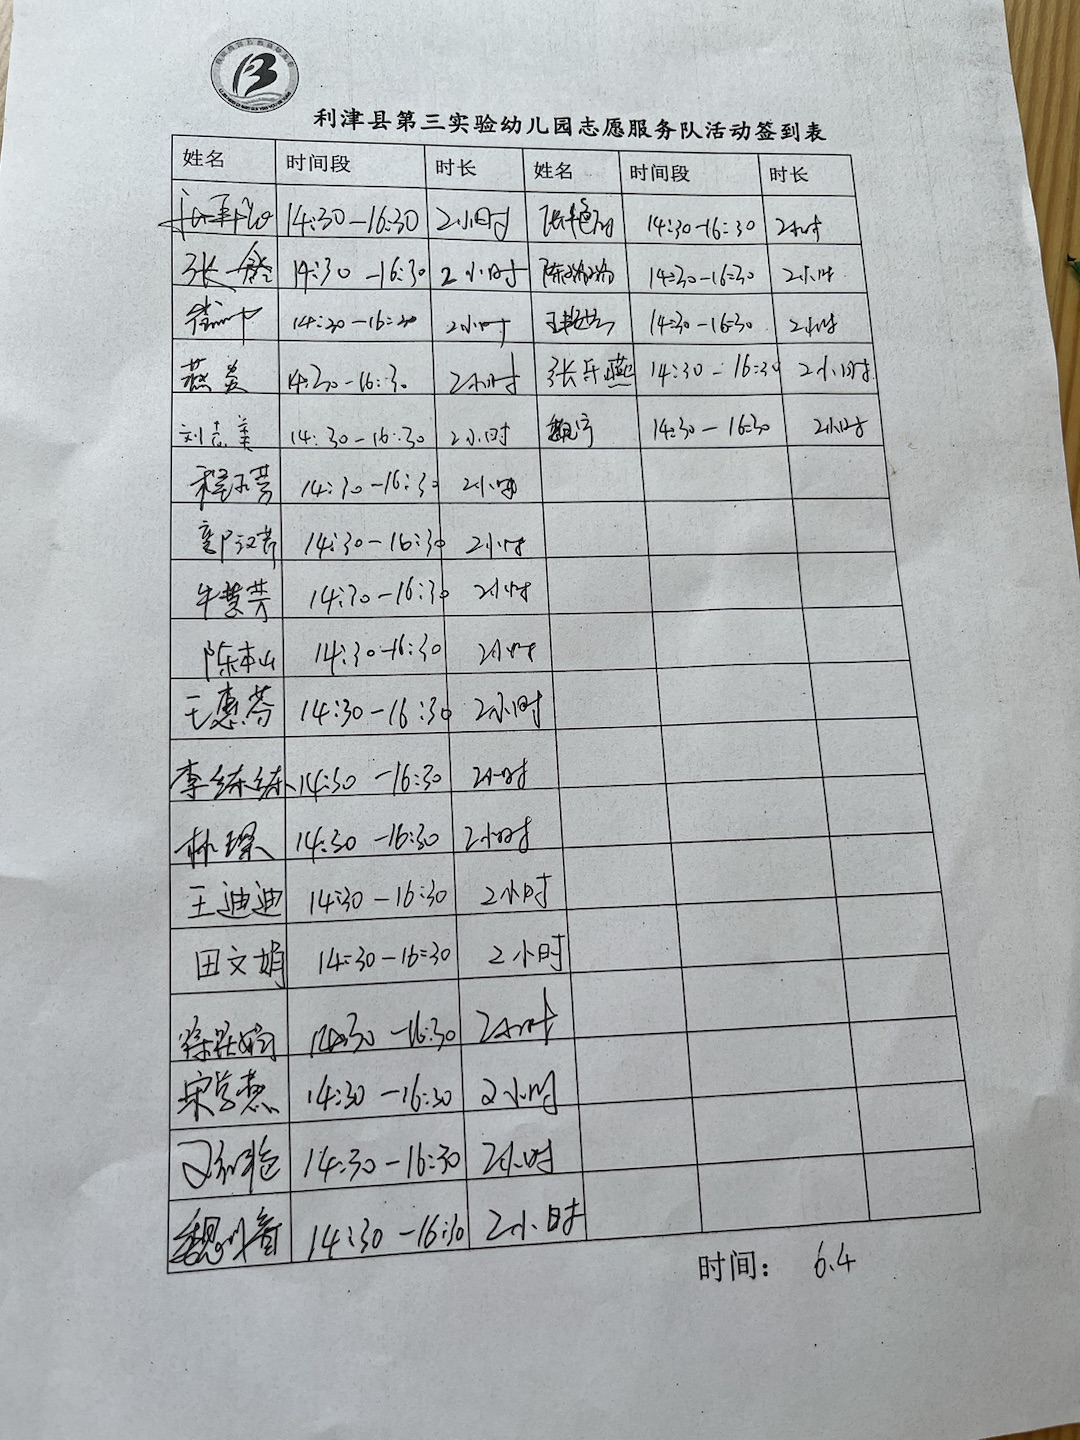 利津县第三实验幼儿园志愿服务队活动签到表
姓名 时间段 时长 姓名 时间段 时长
14:30-16:30 2小时 14:30-16:30 2小时
14:30-16:30 2小时 陈 14:30-16:30 2小时
14:30-16:30 2小时 14:30-16:30 2小时
燕 14:30-16:30 2小时 张乐燕 14:30-16:30 2小时
刘志美 14:30-16:30 2小时 魏宁 14:30-16:30 2小时
14:30-16:30 2小时
14:30-16:30 2小时
牛慧芳 14:30-16:30 2小时
陈本山 14:30-16:30 2小时
王惠芬 14:30-16:30 2小时
李练练 14:30-16:30 2小时
林琛 14:30-16:30 2小时
王迪迪 14:30-16:30 2小时
田文娟 14:30-16:30 2小时
14:30-16:30 2小时
宋学慧 14:30-16:30 2小时
14:30-16:30 2小时
魏 14:30-16:30 2小时
时间: 6.4